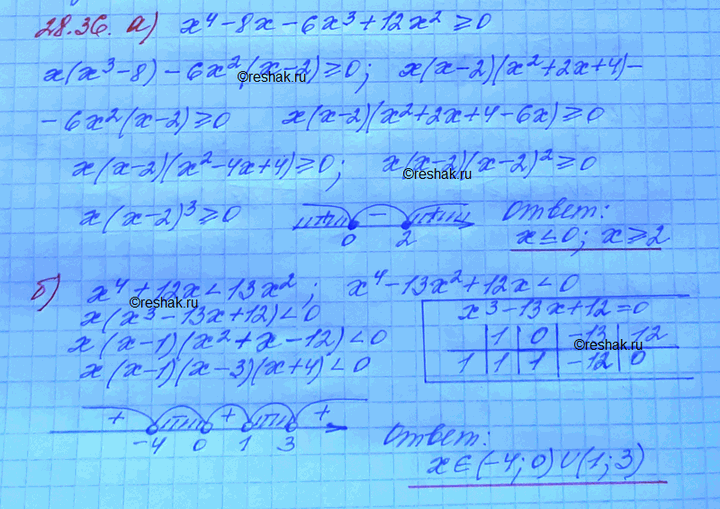 28.36. а) x⁴ - 8x - 6x³ + 12x² ≥ 0
x(x³ - 8) - 6x²(x - 2) ≥ 0; x(x - 2)(x² + 2x + 4) -
©reshak.ru
- 6x²(x - 2) ≥ 0 x(x - 2)(x² + 2x + 4 - 6x) ≥ 0
x(x - 2)(x² - 4x + 4) ≥ 0; x(x - 2)(x - 2)² ≥ 0
©reshak.ru
x(x - 2)³ ≥ 0 + - + Ответ:
0 2 x ≤ 0; x ≥ 2
б) x⁴ + 12x < 13x²; x⁴ - 13x² + 12x < 0
©reshak.ru
x(x³ - 13x + 12) < 0 x³ - 13x + 12 = 0
x(x - 1)(x² + x - 12) < 0 1 0 -13 12
©reshak.ru
x(x - 1)(x - 3)(x + 4) < 0 1 1 1 -12 0
+ - + - +
-4 0 1 3 Ответ:
x ∈ (-4; 0) ∪ (1; 3)